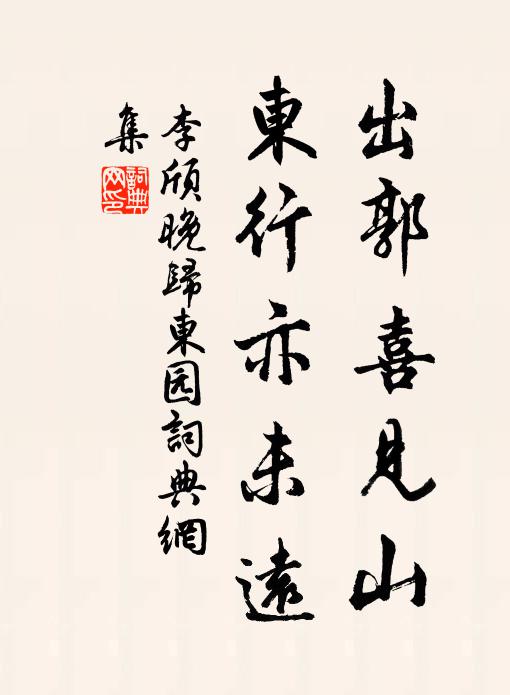 出郭喜見山
東行亦未遠
李頎晚歸東园詞典網
集
詞典
网印